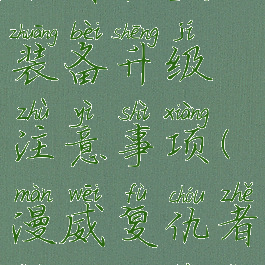 zhuāng bèi shēng jí
装备升级
zhù yì shì xiàng
注意事项(
màn wēi fù chóu zhě
漫威复仇者